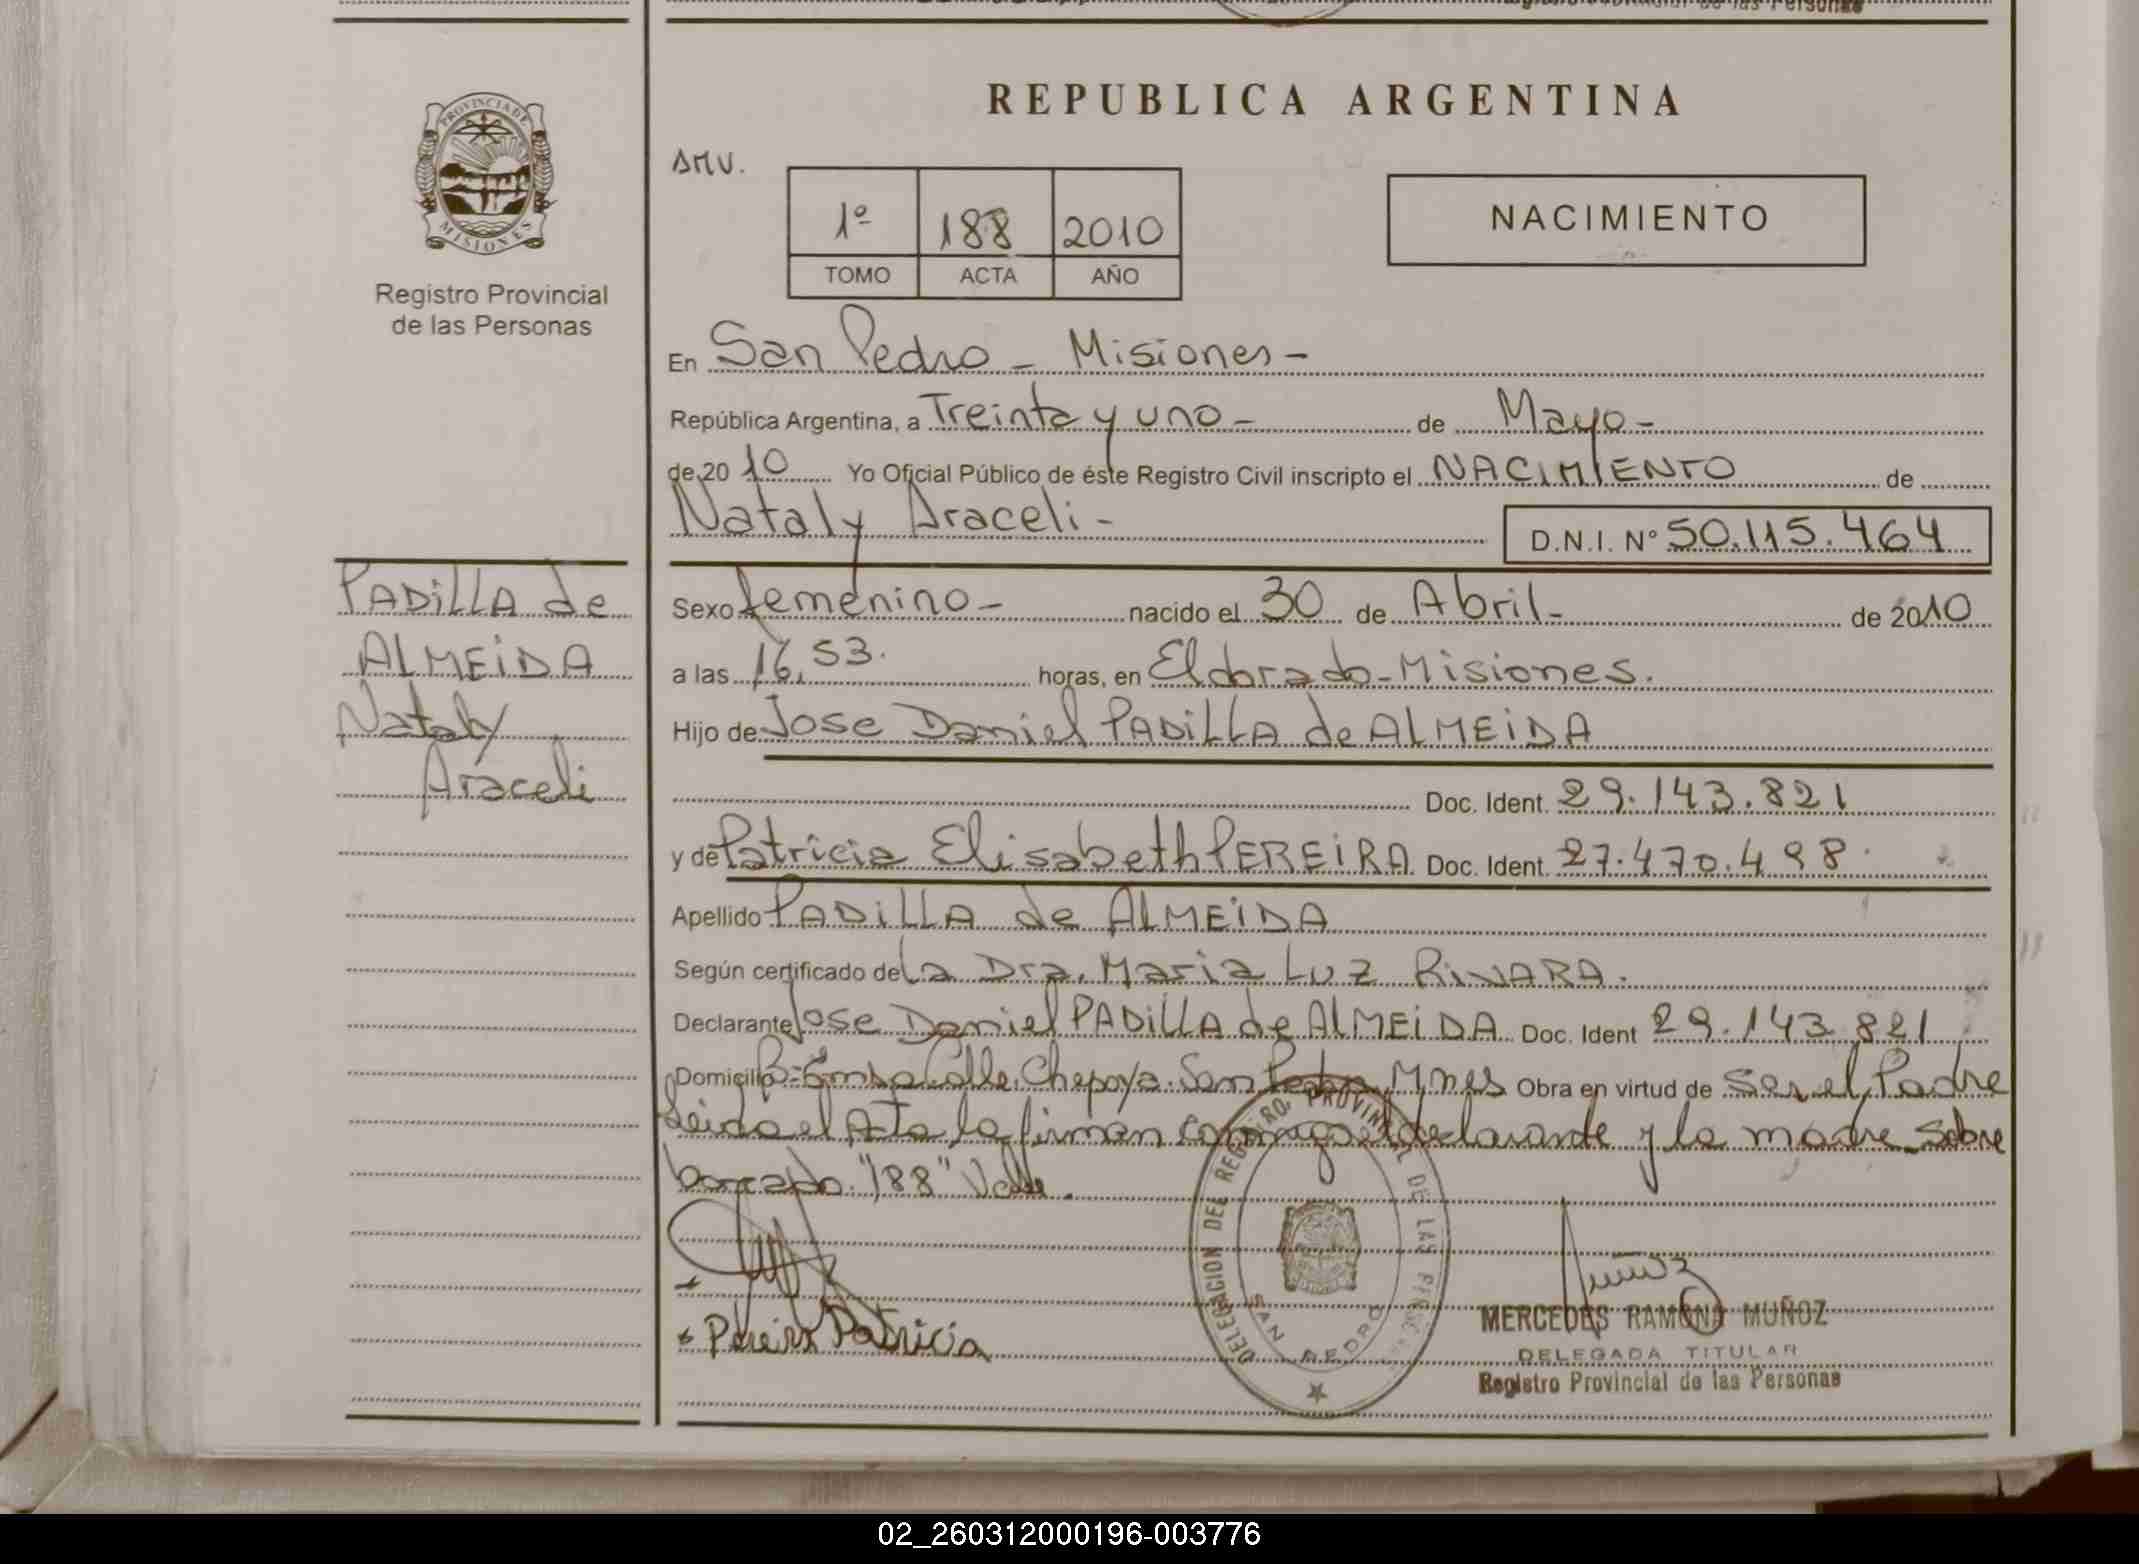 REPUBLICA ARGENTINA
PROVINCIA DE
MISIONES
Registro Provincial
de las Personas
AMV.
1º 188 2010
TOMO ACTA AÑO
NACIMIENTO
En San Pedro - Misiones -
República Argentina, a Treinta y uno - de Mayo -
de 20 10 Yo Oficial Público de éste Registro Civil inscripto el NACIMIENTO de
Nataly Araceli - D.N.I. N° 50.115.464
PADILLA de
ALMEIDA
Nataly
Araceli
Sexo femenino - nacido el 30 de Abril - de 2010
a las 16,53. horas, en Eldorado - Misiones.
Hijo de Jose Daniel PADILLA de ALMEIDA
Doc. Ident. 29.143.821
y de Patricia Elisabeth PEREIRA Doc. Ident. 27.470.498.
Apellido PADILLA de ALMEIDA
Según certificado de La Dra. Maria Luz RINARA.
Declarante Jose Daniel PADILLA de ALMEIDA Doc. Ident 29.143.821
Domicilio Calle Chepoya. San Pedro Mnes Obra en virtud de Ser el Padre
Leida el Acta la firman conmigo el declarante y la madre Sobre
borrado "188" Vale.
Pereira Patricia
DELEGACION DEL REGISTRO PROVINCIAL DE LAS PERSONAS
SAN PEDRO
MERCEDES RAMONA MUÑOZ
DELEGADA TITULAR
Registro Provincial de las Personas
02_260312000196-003776